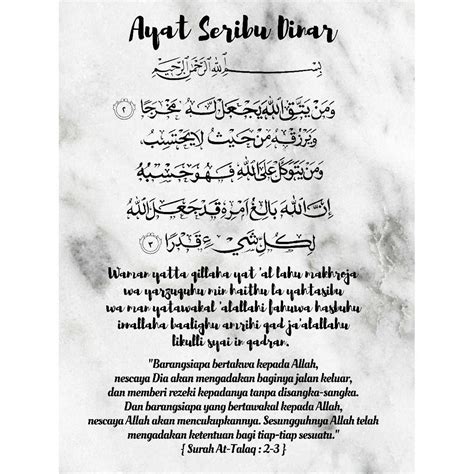 Ayat Seribu Dinar
بِسْمِ اللَّهِ الرَّحْمَٰنِ الرَّحِيمِ
وَمَنْ يَتَّقِ اللَّهَ يَجْعَلْ لَهُ مَخْرَجًا ٢
وَيَرْزُقْهُ مِنْ حَيْثُ لَا يَحْتَسِبُ
وَمَنْ يَتَوَكَّلْ عَلَى اللَّهِ فَهُوَ حَسْبُهُ
إِنَّ اللَّهَ بَالِغُ أَمْرِهِ قَدْ جَعَلَ اللَّهُ
لِكُلِّ شَيْءٍ قَدْرًا ٣
Waman yatta qillaha yaj 'al lahu makhroja
wa yarzuquhu min haithu la yahtasibu
wa man yatawakal 'alallahi fahuwa hasbuhu
innallaha baalighu amrihi qad ja'alallahu
likulli syai in qadran.
"Barangsiapa bertakwa kepada Allah,
nescaya Dia akan mengadakan baginya jalan keluar,
dan memberi rezeki kepadanya tanpa disangka-sangka.
Dan barangsiapa yang bertawakal kepada Allah,
nescaya Allah akan mencukupkannya. Sesungguhnya Allah telah
mengadakan ketentuan bagi tiap-tiap sesuatu."
{ Surah At-Talaq : 2-3 }